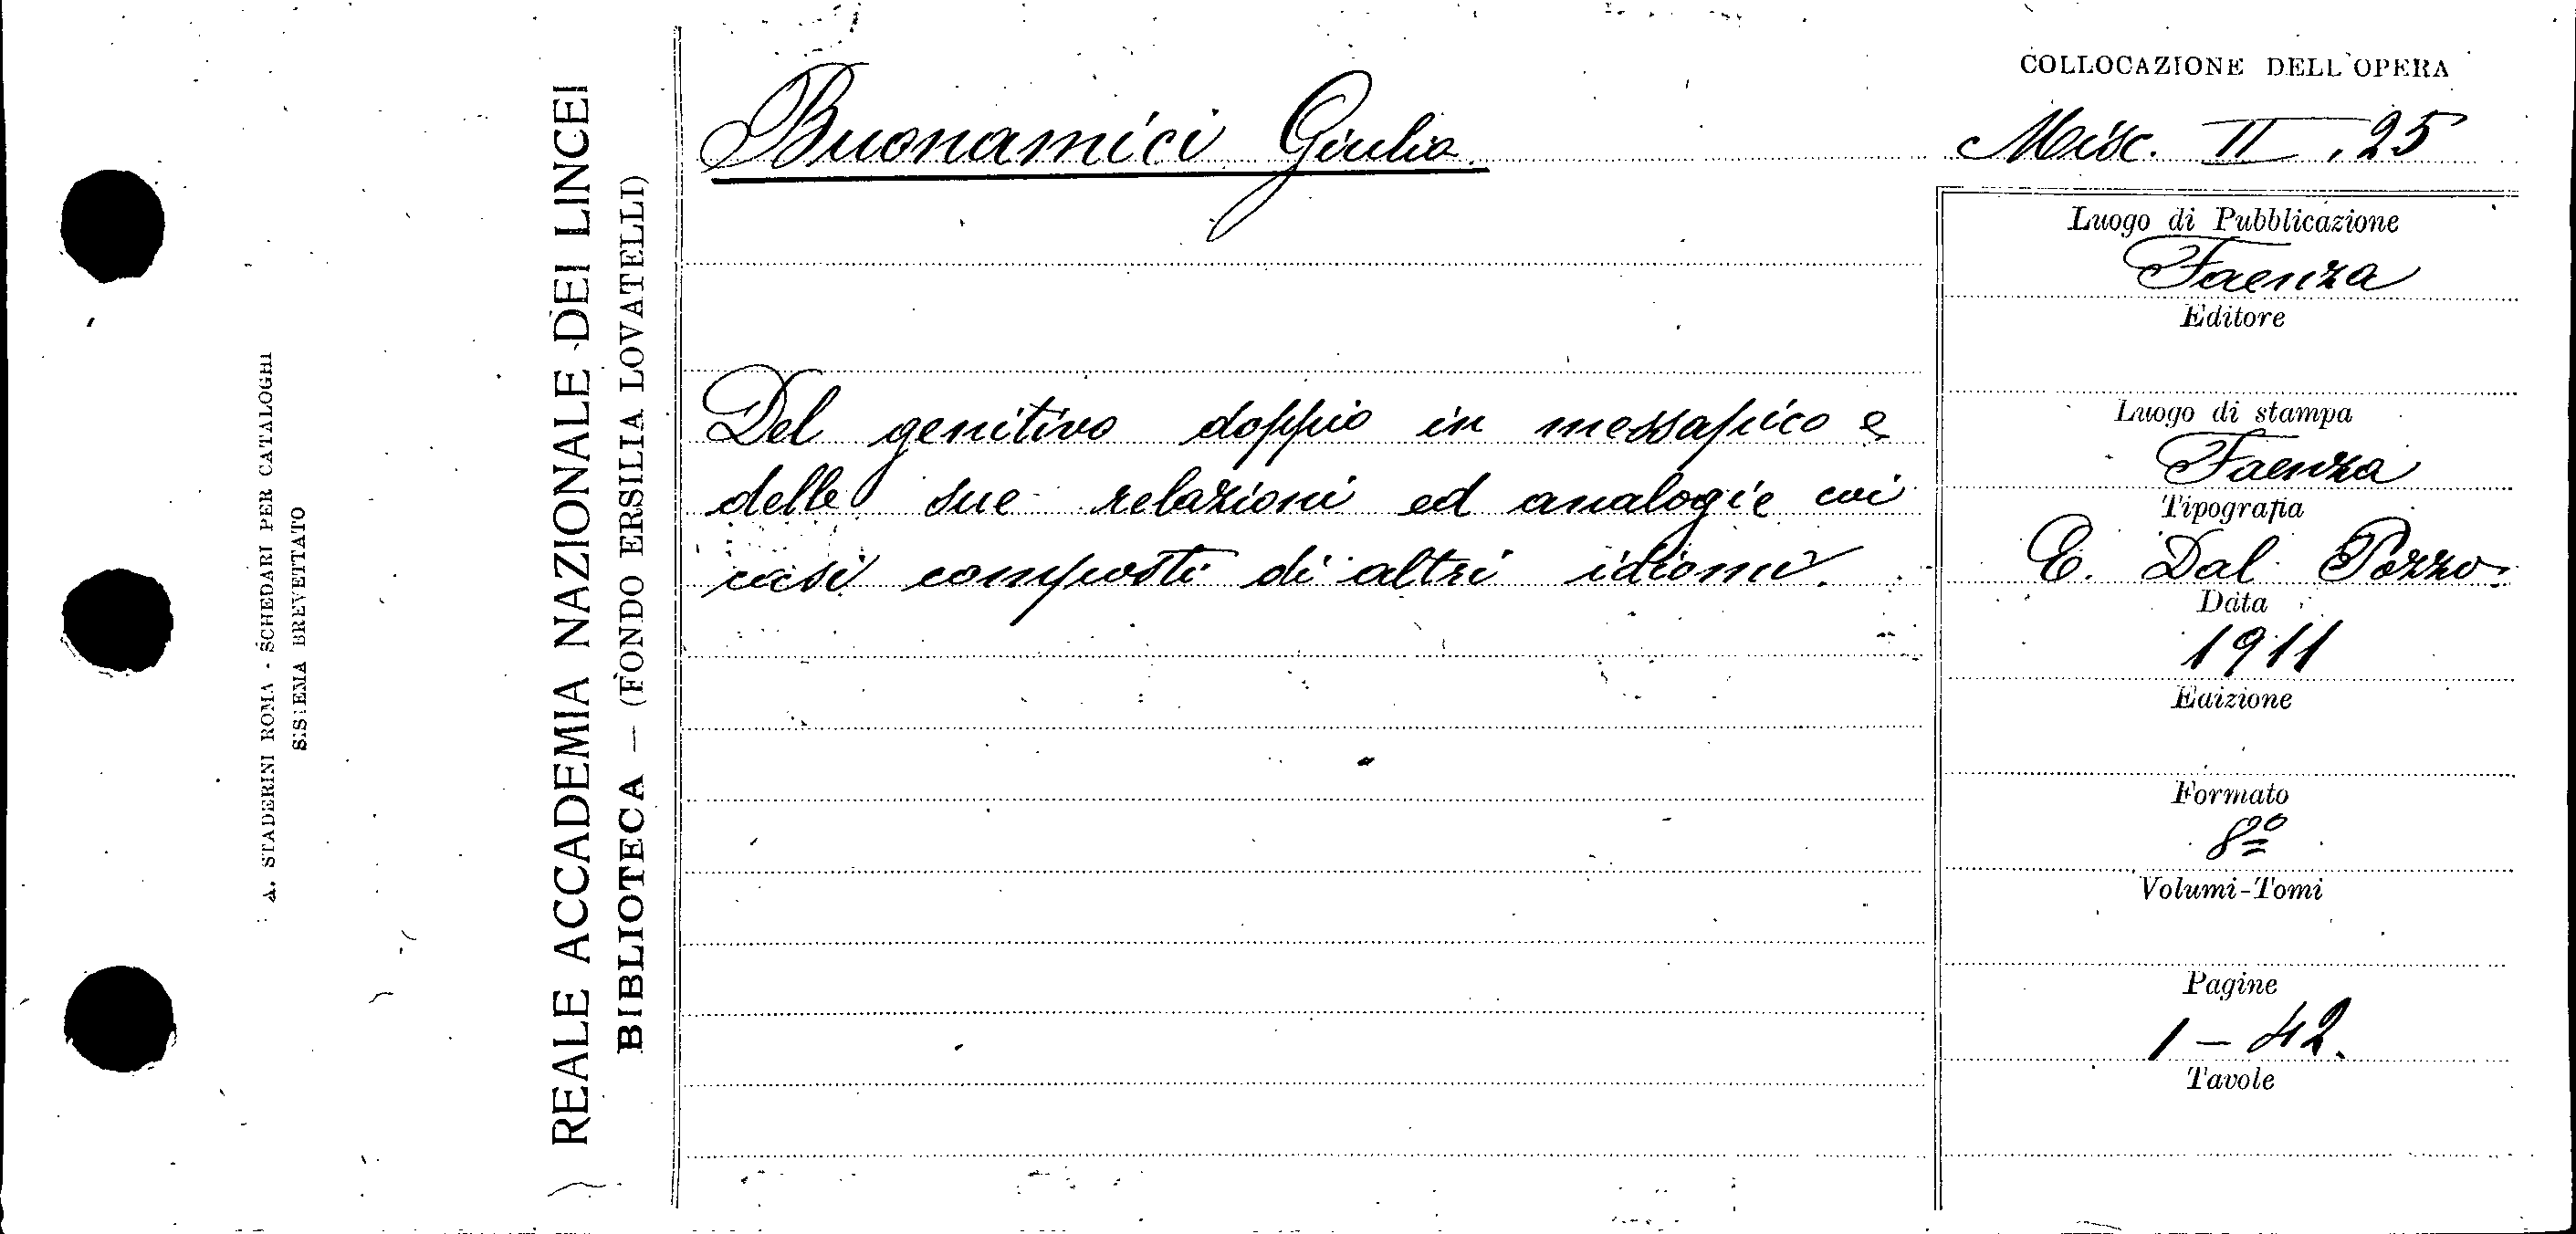 A. STADERINI ROMA - SCHEDARI PER CATALOGHI
SISTEMA BREVETTATO
REALE ACCADEMIA NAZIONALE DEI LINCEI
BIBLIOTECA — (FONDO ERSILIA LOVATELLI)
Buonamici Giulio
Del genitivo doppio in messapico e
delle sue relazioni ed analogie coi
casi composti di altri idiomi.
COLLOCAZIONE DELL'OPERA
Misc. II, 25
Luogo di Pubblicazione
Faenza
Editore
Luogo di stampa
Faenza
Tipografia
E. Dal Pozzo.
Data
1911
Edizione
Formato
8º
Volumi-Tomi
Pagine
1 - 42.
Tavole